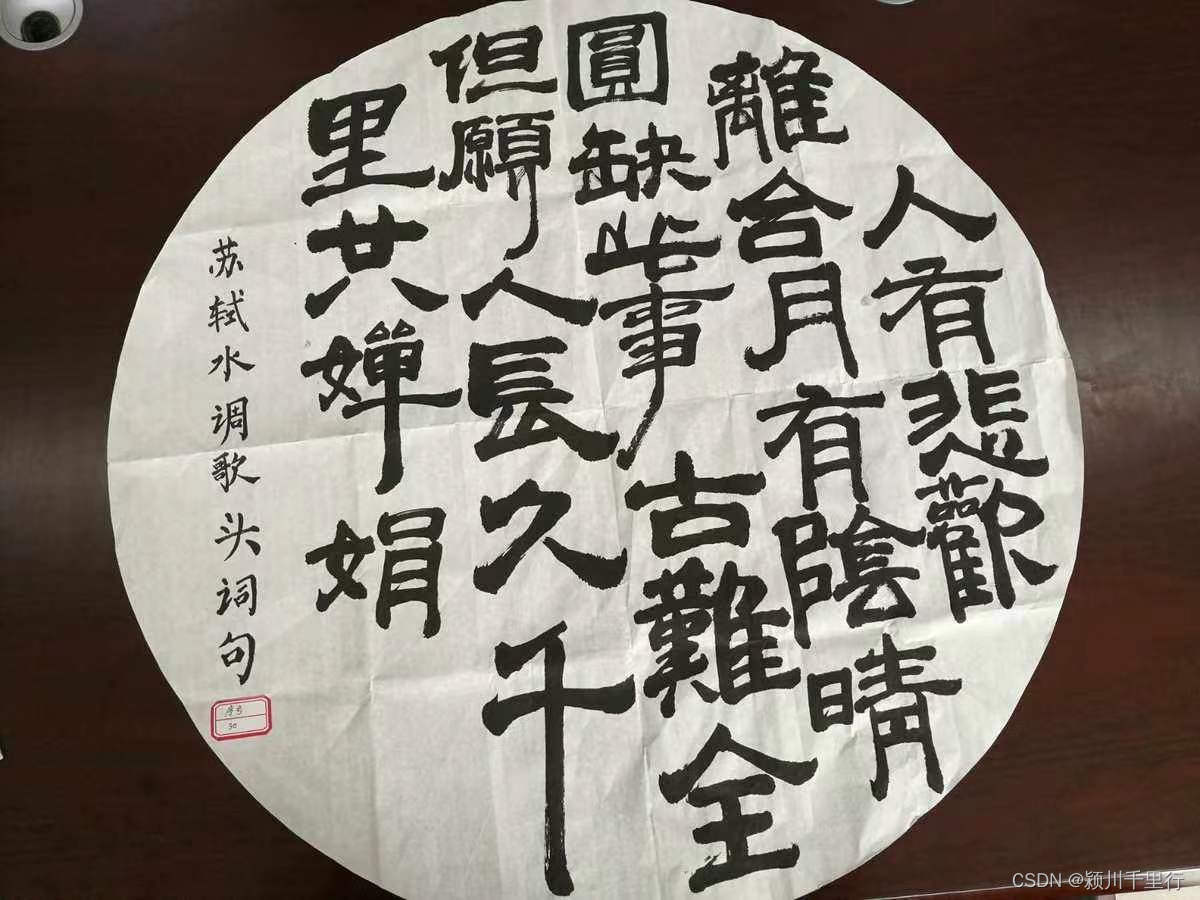 人有悲歡
離合月有陰晴
圓缺此事古難全
但願人長久千
里共嬋娟
苏轼水调歌头词句
序号
30
CSDN @颍川千里行